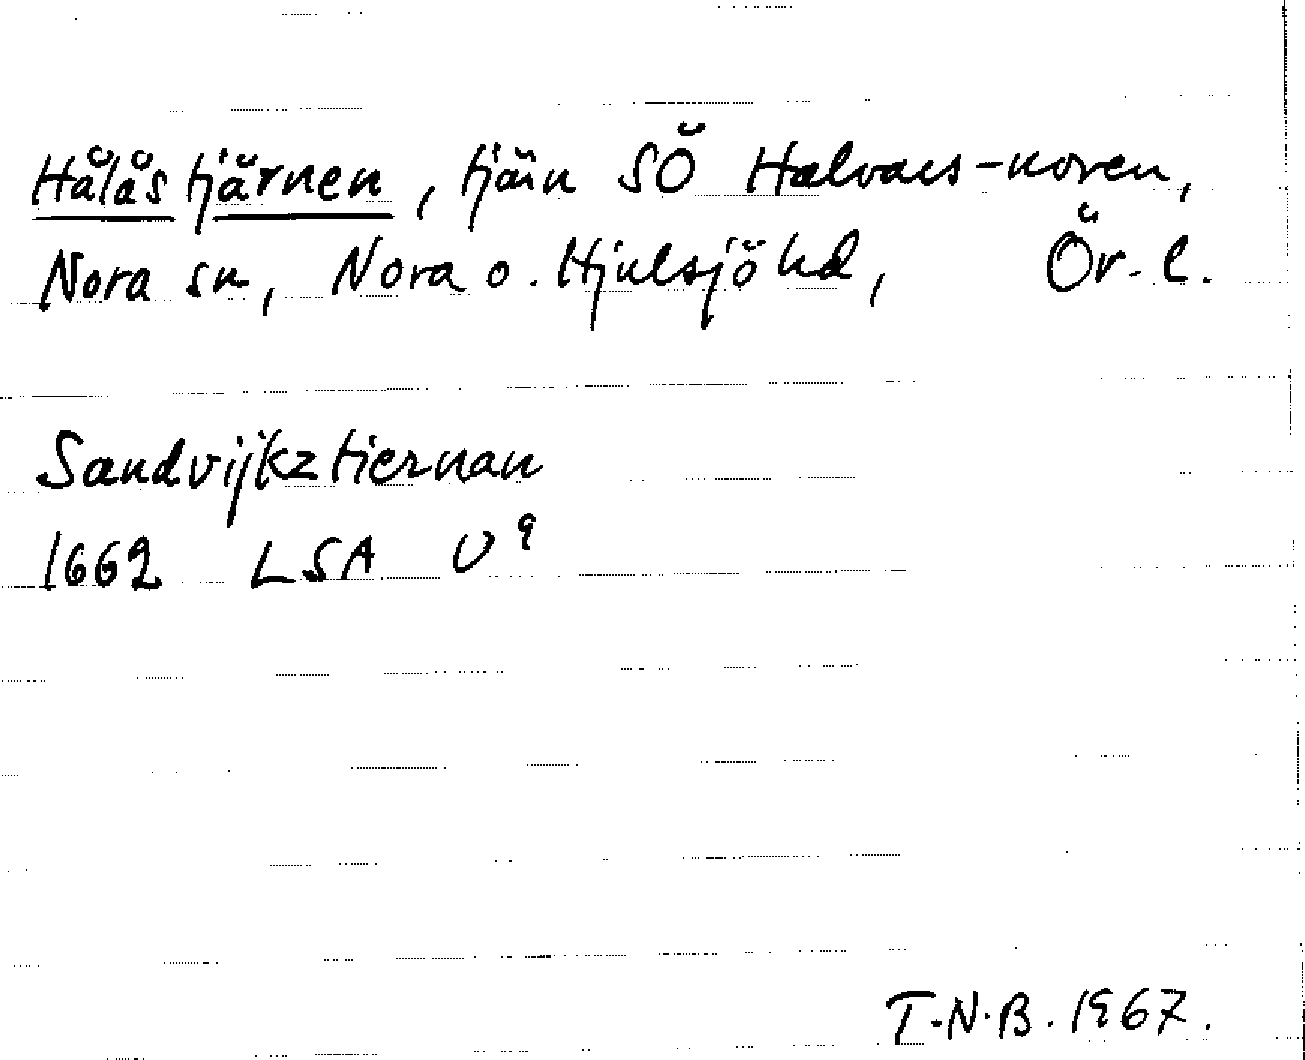 Hålåstjärnen, tjärn SÖ Halvars-noren,
Nora sn, Nora o. Hjulsjö hd, Ör. l.
Sandvijkztiernan
1662 LSA U⁹
T.N.B. 1967.